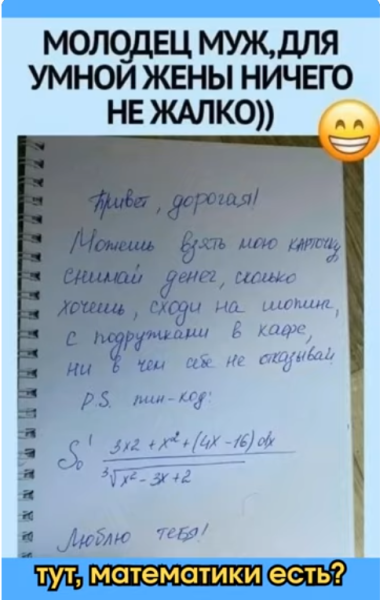 МОЛОДЕЦ МУЖ,ДЛЯ
УМНОЙ ЖЕНЫ НИЧЕГО
НЕ ЖАЛКО))
Привет, дорогая!
Можешь взять мою карточку
снимай денег, сколько
хочешь, сходи на шопинг,
с подружками в кафе,
ни в чем себе не отказывай
P.S. пин-код:
∫₀¹ 3x2 + x² + (4x - 16) dx
∛x² - 3x + 2
Люблю тебя!
тут, математики есть?